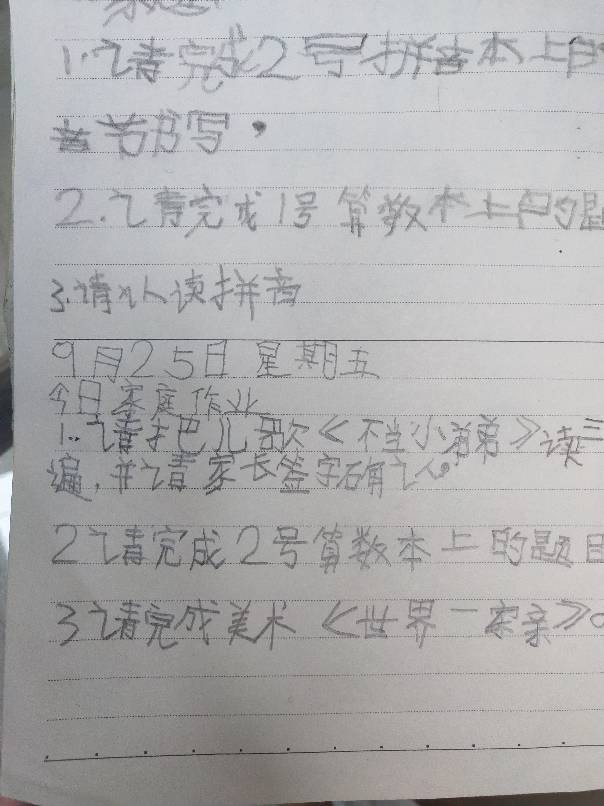 1.请完成2号拼音本上的
书写。
2.请完成1号算数本上的题
3.请认读拼音
9月25日 星期五
今日家庭作业
1.请把儿歌《不当小弟弟》读三
遍,并请家长签字确认。
2请完成2号算数本上的题目
3请完成美术《世界一家亲》。